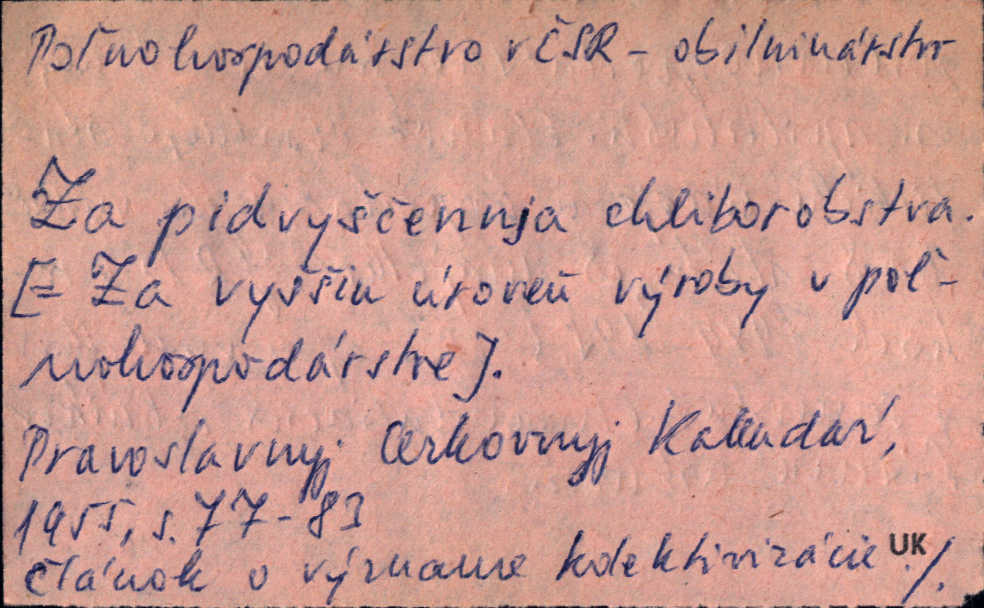 Poľnohospodárstvo v ČSR - obilninárstvo
Za pidvyščennja chliborobstva.
[= Za vyššiu úroveň výroby v poľ-
nohospodárstve].
Pravoslavnyj Cerkovnyj Kalendar,
1955, s. 77-83
Článok o význame kolektivizácie UK ./.